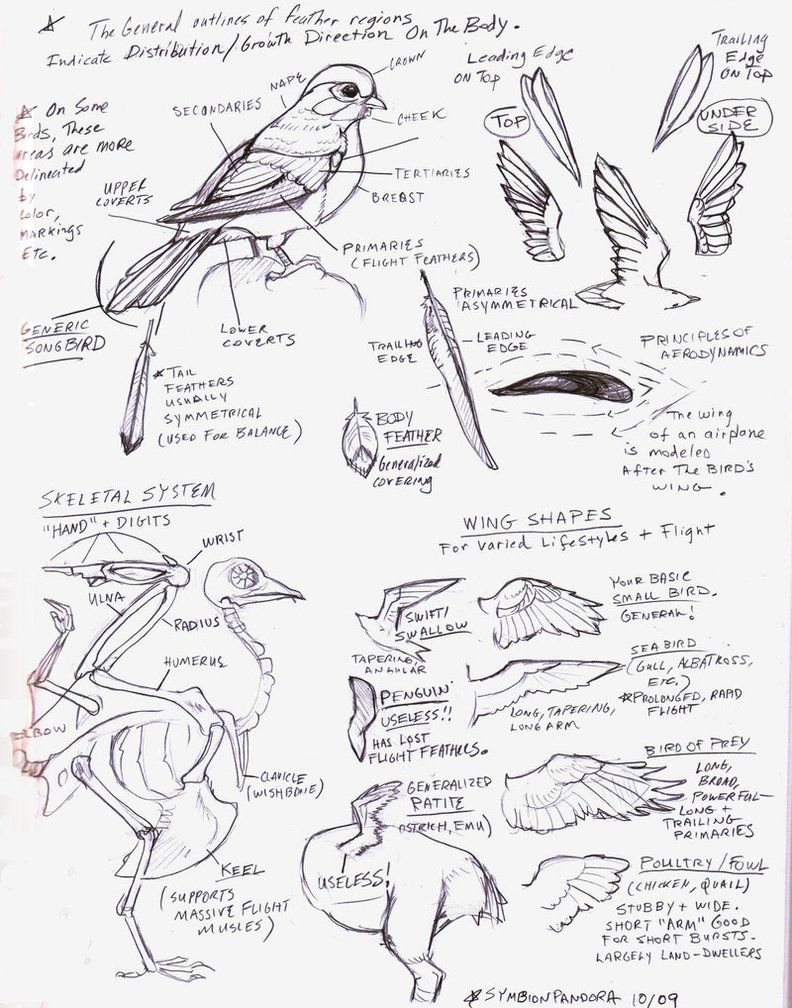 * The General outlines of feather regions
Indicate Distribution/Growth Direction On The Body.
* On Some
Birds, These
areas are more
Delineated
by
color,
markings
Etc.
CROWN
NAPE
SECONDARIES
CHEEK
TERTIARIES
BREAST
UPPER
COVERTS
PRIMARIES
(FLIGHT FEATHERS)
LOWER
COVERTS
GENERIC
SONGBIRD
* TAIL
FEATHERS
USUALLY
SYMMETRICAL
(USED FOR BALANCE)
Leading Edge
ON TOP
TRAILING
Edge
ON TOP
TOP
UNDER
SIDE
PRIMARIES
ASYMMETRICAL
TRAILING
EDGE
LEADING
EDGE
BODY
FEATHER
Generalized
COVERING
PRINCIPLES OF
AERODYNAMICS
The wing
of an airplane
is modeled
AFTER THE BIRD'S
WING.
SKELETAL SYSTEM
"HAND" + DIGITS
WRIST
ULNA
RADIUS
HUMERUS
ELBOW
CLAVICLE
(WISHBONE)
KEEL
(SUPPORTS
MASSIVE FLIGHT
MUSLES)
WING SHAPES
For Varied Lifestyles + Flight
SWIFT/
SWALLOW
TAPERING,
ANGULAR
YOUR BASIC
SMALL BIRD.
GENERAL!
PENGUIN
USELESS!!
HAS LOST
FLIGHT FEATHERS.
SEA BIRD
(GULL, ALBATROSS,
ETC.)
*PROLONGED, RAPID
FLIGHT
LONG, TAPERING,
LONG ARM
BIRD OF PREY
LONG,
BROAD,
POWERFUL-
LONG +
TRAILING
PRIMARIES
GENERALIZED
RATITE
(OSTRICH, EMU)
USELESS!
POULTRY/FOWL
(CHICKEN, QUAIL)
STUBBY + WIDE.
SHORT "ARM" GOOD
FOR SHORT BURSTS.
LARGELY LAND-DWELLERS
*SYMBIONPANDORA 10/09